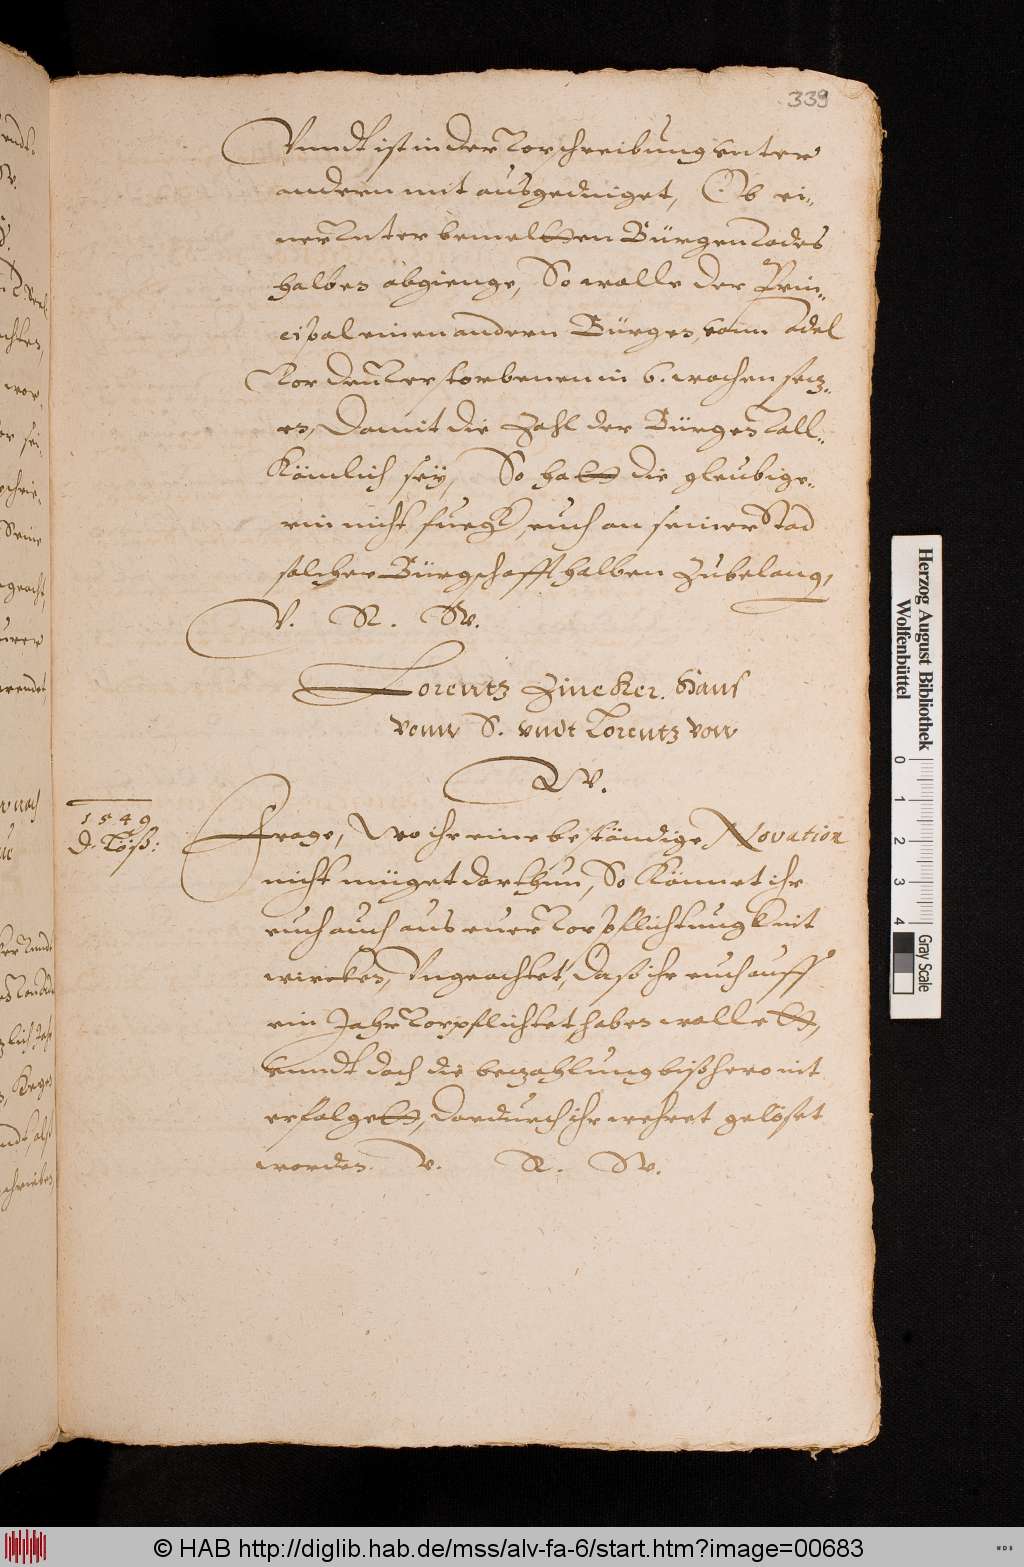 339
Vnndt ist in der Vorschreibung vnter
andern mit ausgedinget, Ob ei-
ner Vnter bemelten Bürgen Todes
halben abgienge, So wolle der Prin-
cipal einen andern Bürgen, vonn Adel
Vor den Verstorbenen in 6. wochen setz-
en, Damit die Zahl der Bürgen Voll-
kömlich sey, So hatt die gleubige-
rin nicht fueg, euch an seiner Stad
solcher Bürgschafft halben Zubelang,
V. R. W.
Lorentz Zincker. Hans
vonn S. vndt Lorentz von
W.
1549
D. Töß:
Frage, Wo ihr eine bestendige Novation
nicht müget darthun, So Könnet ihr
euch auch aus euer Vorpflichtung nit
wircken, Vngeachtet, Daß ihr euch auff
ein Jahr Vorpflichtet haben wollet,
vnndt doch die bezahlung bißhero nit
erfolget, dardurch ihr wehret gelöset
worden. V. R. W.
Herzog August Bibliothek
Wolfenbüttel
0 1 2 3 4
Gray Scale
© HAB http://diglib.hab.de/mss/alv-fa-6/start.htm?image=00683